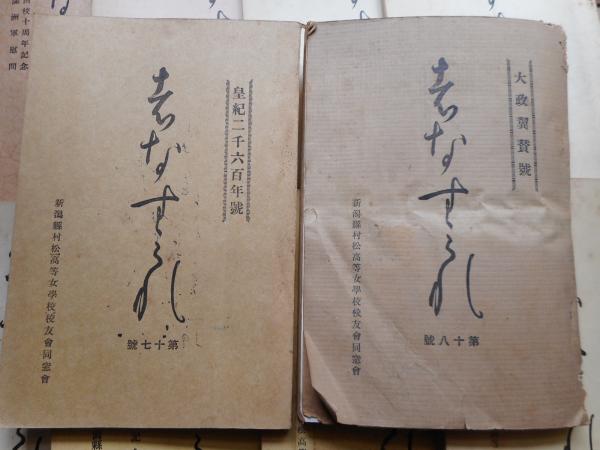 皇紀二千六百年號
志なすみれ
新潟縣村松高等女學校校友會同窓會
號七十第
大政翼賛號
志なすみれ
新潟縣村松高等女學校校友會同窓會
號八十第
校十周年記念
洲軍慰問